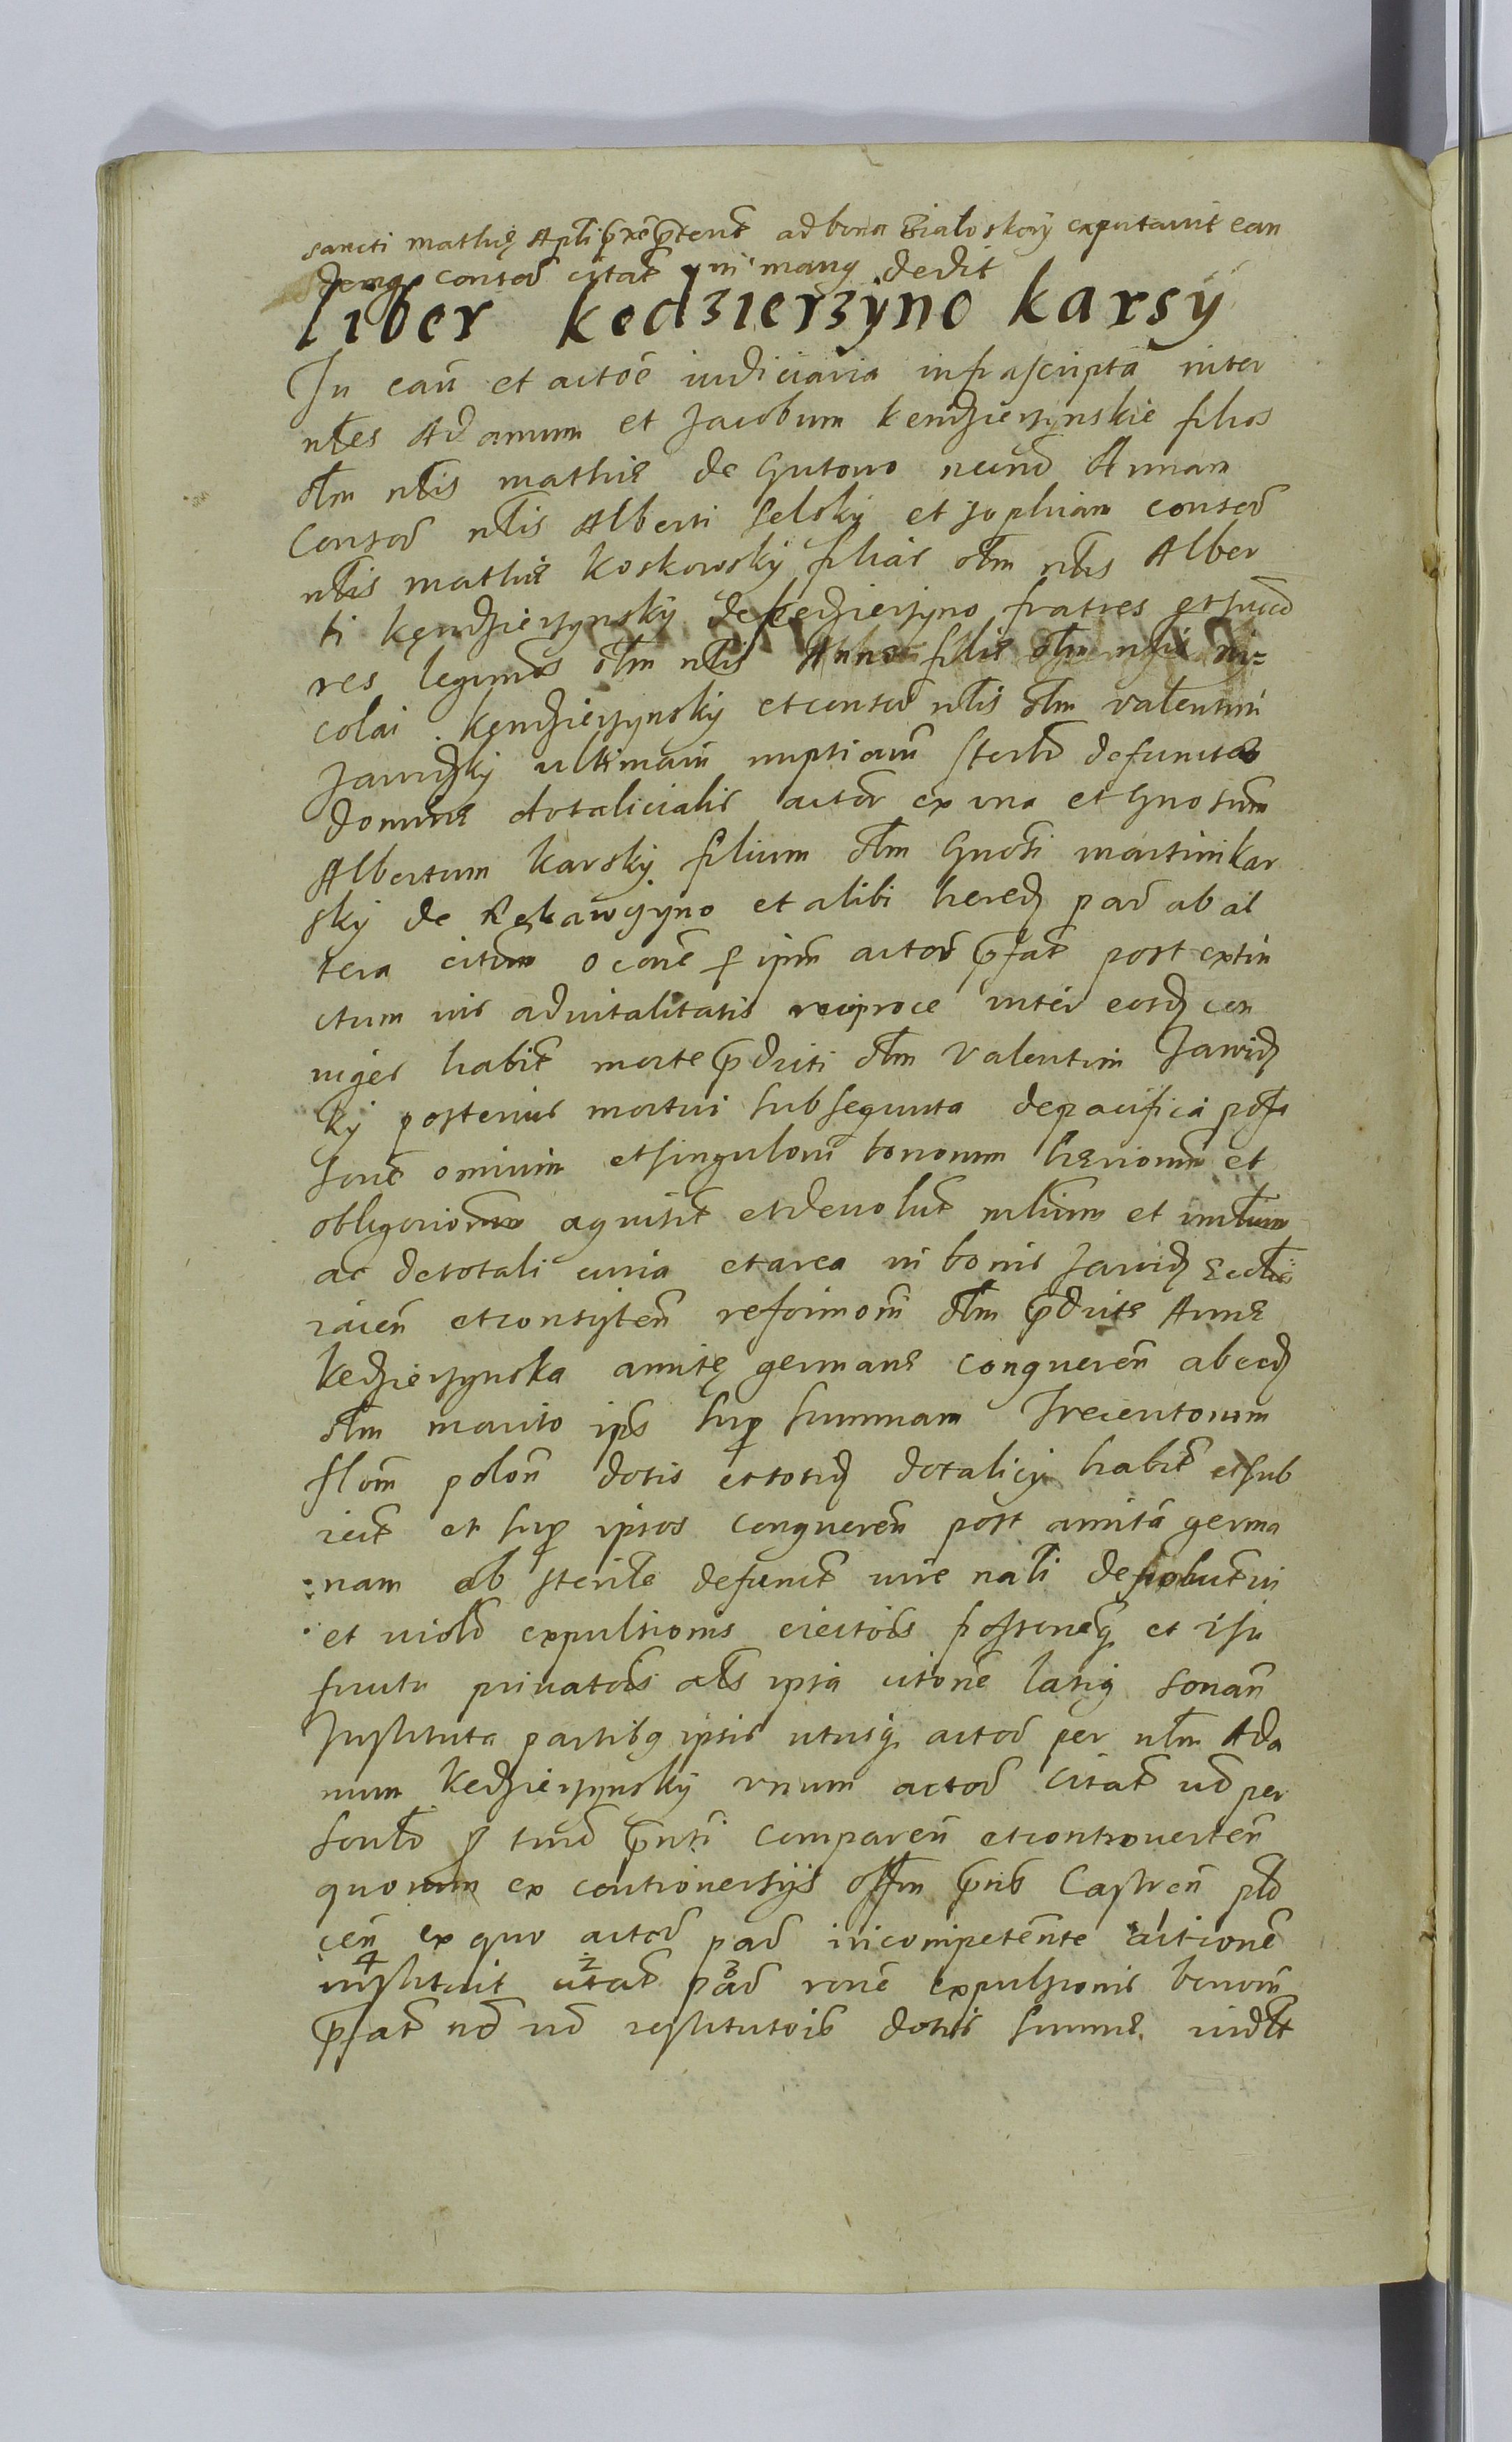 sancti mathię Apli p̃xe p̃terit̃ ad bona Białoskory exputauit ean
demq̢ consor̃ citat̃ in manq̢ dedit
liber kedzierzyno karsy
In cau͠ et actoe͠ iudiciaria infrascripta͠ inter
nłes Adamum et Jacobum kendzierzynskie filios
ołm nłis mathię de Gutowo necno͠ Annam
Consor̃ nłis Alberti selsky et sophiam consor̃
nłis mathię koskowsky filias ołm nłis Alber
ti kęndzierzynsky de kedzierzyno fratres et succ̃
res legitmos ołm nłis Annę filię ołm nłis Ni=
colai kęndzierzynsky et consor̃ nłis ołm valentini
Jawidzky ultimaru͠ nuptiaru͠ steril̃ defunctae
dominę dotalicialis actor̃ ex vna et Gnosum͠
Albertum karsky filium ołm Gnosi͠ martini kar
sky de Rękawczyno et alibi hered̨ par̃ ab al
tera citum oc̃one͠ p ipm͠ actor̃ p̃fat̃ post extin
ctum iuis aduitalitatis reciproce inter eosd̨ con
iuges habit̃ morte p̃dicti ołm Valentini Jawid̨
ky posterius mortui subsequuta de pacifica poss
sione͠ omnium et singuloru͠ bonorum hęriorum͠ et
obligoriorum aquisit̃ et deuolut̃ mlium͠ et imłium
ac de totali curia et area in bonis Jawid̨
iacen͠ et consisten͠ reformoni͠ ołm p̃dictę Annę
kedzierzynska amitę germanę conqueren͠ ab eod̨
ołm marito ips͠ sup̱ summam Trecentorum
flom͠ polon͠ dotis et totid̨ dotalicÿ habit̃ et sub
iect̃ et sup̱ ipsos conqueren͠ post amita͠ germa
nam ab sterile͠ defunct̃ iure nał̃i deuolut̃ vi
et viol̃ expulsionis eiectois͠ possioneq̢ et vsu
fructu priuatois͠ ałs ipsa citone͠ latiq̢ sonan͠
Instituta partibq̢ ipsis utrisq̢ actor̃ per nłm Ada
mum kedzierzynsky vnum actor̃ citat̃ vo͠ per
sonł̃r p tmd̃ p̃nti͠ comparen͠ et controuerten͠
quorum ex controuersÿs Offm͠ p̃ns Castren͠ płõ
cen͠ ex quo actor̃ par̃ incompetente͠ actionẽ
instituit citat̃ par̃ rone͠ expulsionis bonom͠
p̃fat̃ no͠ vo͠ restitutois͠ dotis summę vidłt